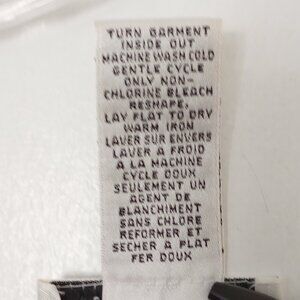 TURN GARMENT
INSIDE OUT
MACHINE WASH COLD
GENTLE CYCLE
ONLY NON-
CHLORINE BLEACH
RESHAPE,
LAY FLAT TO DRY
WARM IRON
LAVER SUR ENVERS
LAVER A FROID
A LA MACHINE
CYCLE DOUX
SEULEMENT UN
AGENT DE
BLANCHIMENT
SANS CHLORE
REFORMER ET
SECHER A PLAT
FER DOUX